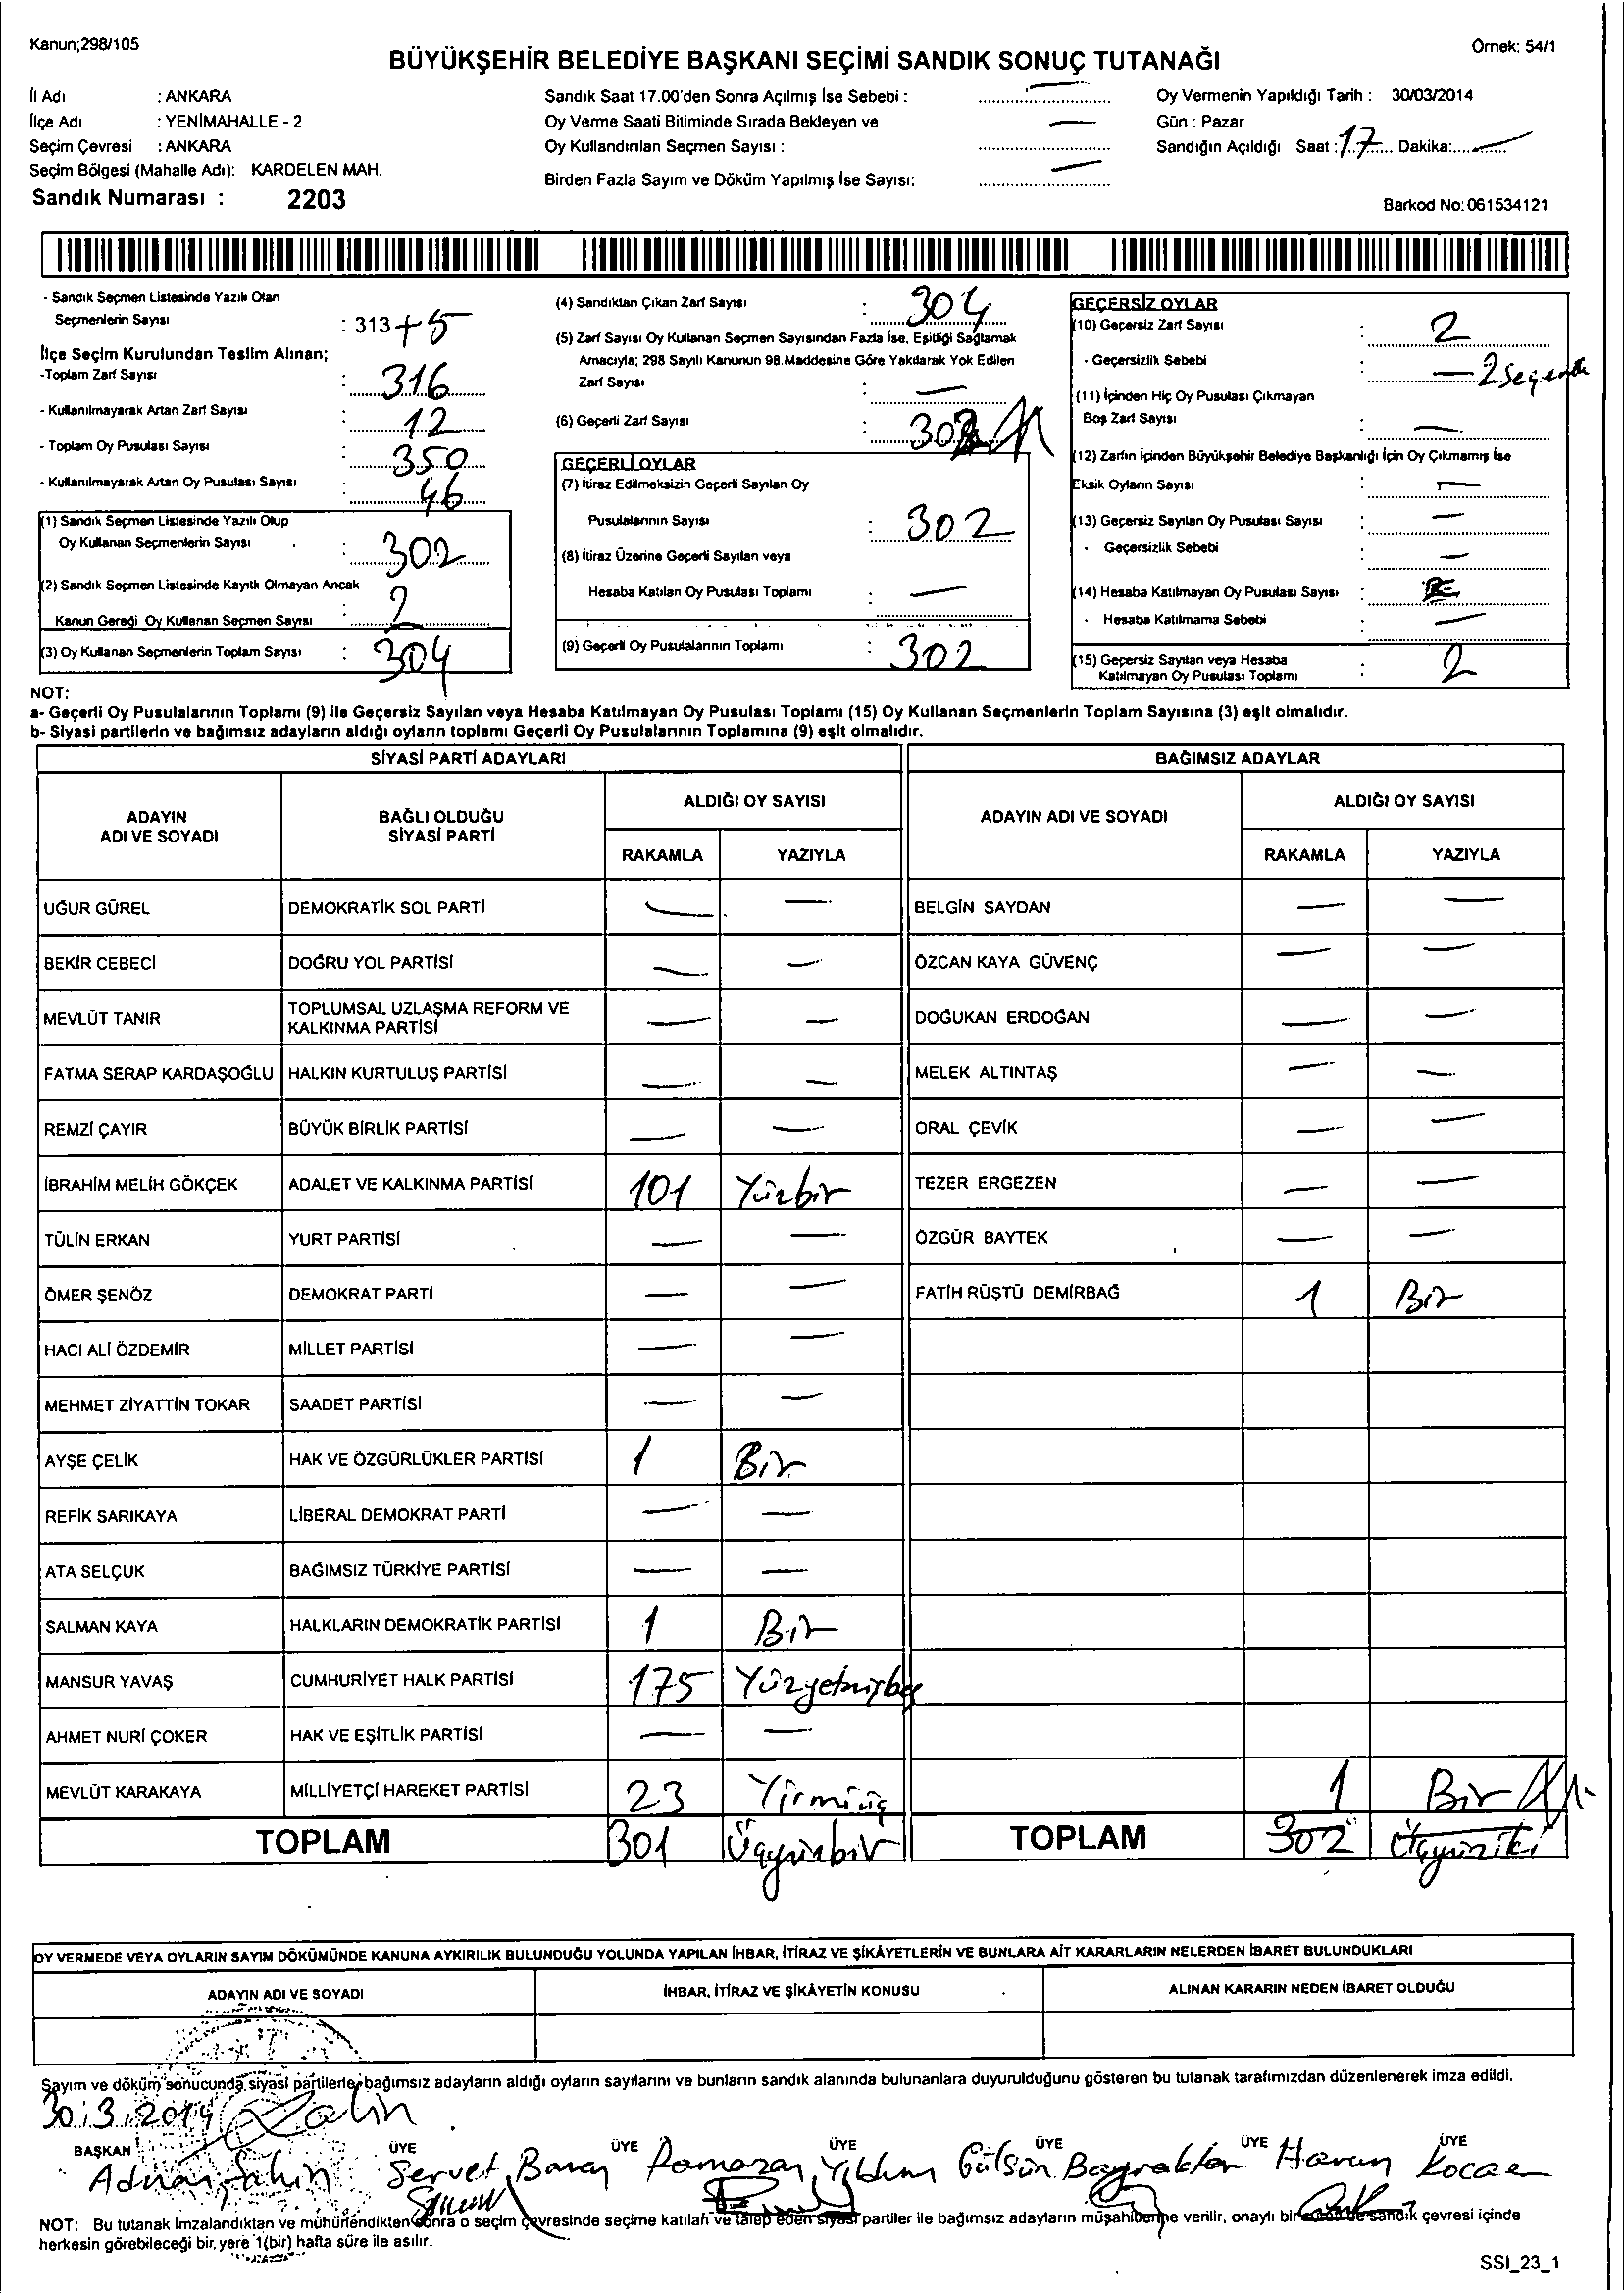 Kanun;298/105
Örnek: 54/1
BÜYÜKŞEHİR BELEDİYE BAŞKANI SEÇİMİ SANDIK SONUÇ TUTANAĞI
İl Adı : ANKARA
İlçe Adı : YENİMAHALLE - 2
Seçim Çevresi : ANKARA
Seçim Bölgesi (Mahalle Adı): KARDELEN MAH.
Sandık Numarası : 2203
Sandık Saat 17.00'den Sonra Açılmış İse Sebebi : —
Oy Verme Saati Bitiminde Sırada Bekleyen ve
Oy Kullandırılan Seçmen Sayısı : —
Birden Fazla Sayım ve Döküm Yapılmış İse Sayısı: —
Oy Vermenin Yapıldığı Tarih : 30/03/2014
Gün : Pazar
Sandığın Açıldığı Saat : 17 Dakika: —
Barkod No: 061534121
- Sandık Seçmen Listesinde Yazılı Olan
Seçmenlerin Sayısı : 313 + 5
İlçe Seçim Kurulundan Teslim Alınan;
-Toplam Zarf Sayısı : 316
- Kullanılmayarak Artan Zarf Sayısı : 12
- Toplam Oy Pusulası Sayısı : 350
- Kullanılmayarak Artan Oy Pusulası Sayısı : 46
(1) Sandık Seçmen Listesinde Yazılı Olup
Oy Kullanan Seçmenlerin Sayısı : 302
(2) Sandık Seçmen Listesinde Kayıtlı Olmayan Ancak
Kanun Gereği Oy Kullanan Seçmen Sayısı : 2
(3) Oy Kullanan Seçmenlerin Toplam Sayısı : 304
(4) Sandıktan Çıkan Zarf Sayısı : 304
(5) Zarf Sayısı Oy Kullanan Seçmen Sayısından Fazla İse, Eşitliği Sağlamak
Amacıyla; 298 Sayılı Kanunun 98.Maddesine Göre Yakılarak Yok Edilen
Zarf Sayısı : —
(6) Geçerli Zarf Sayısı : 302
GEÇERLİ OYLAR
(7) İtiraz Edilmeksizin Geçerli Sayılan Oy
Pusulalarının Sayısı : 302
(8) İtiraz Üzerine Geçerli Sayılan veya
Hesaba Katılan Oy Pusulası Toplamı : —
(9) Geçerli Oy Pusulalarının Toplamı : 302
GEÇERSİZ OYLAR
(10) Geçersiz Zarf Sayısı : 2
- Geçersizlik Sebebi : — 2
(11) İçinden Hiç Oy Pusulası Çıkmayan
Boş Zarf Sayısı : —
(12) Zarfın İçinden Büyükşehir Belediye Başkanlığı İçin Oy Çıkmamış İse
Eksik Oyların Sayısı : —
(13) Geçersiz Sayılan Oy Pusulası Sayısı : —
- Geçersizlik Sebebi : —
(14) Hesaba Katılmayan Oy Pusulası Sayısı :
- Hesaba Katılmama Sebebi : —
(15) Geçersiz Sayılan veya Hesaba
Katılmayan Oy Pusulası Toplamı : 2
NOT:
a- Geçerli Oy Pusulalarının Toplamı (9) ile Geçersiz Sayılan veya Hesaba Katılmayan Oy Pusulası Toplamı (15) Oy Kullanan Seçmenlerin Toplam Sayısına (3) eşit olmalıdır.
b- Siyasi partilerin ve bağımsız adayların aldığı oyların toplamı Geçerli Oy Pusulalarının Toplamına (9) eşit olmalıdır.
SİYASİ PARTİ ADAYLARI BAĞIMSIZ ADAYLAR
ADAYIN ADI VE SOYADI BAĞLI OLDUĞU SİYASİ PARTİ ALDIĞI OY SAYISI ADAYIN ADI VE SOYADI ALDIĞI OY SAYISI
RAKAMLA YAZIYLA RAKAMLA YAZIYLA
UĞUR GÜREL DEMOKRATİK SOL PARTİ — — BELGİN SAYDAN — —
BEKİR CEBECİ DOĞRU YOL PARTİSİ — — ÖZCAN KAYA GÜVENÇ — —
MEVLÜT TANIR TOPLUMSAL UZLAŞMA REFORM VE KALKINMA PARTİSİ — — DOĞUKAN ERDOĞAN — —
FATMA SERAP KARDAŞOĞLU HALKIN KURTULUŞ PARTİSİ — — MELEK ALTINTAŞ — —
REMZİ ÇAYIR BÜYÜK BİRLİK PARTİSİ — — ORAL ÇEVİK — —
İBRAHİM MELİH GÖKÇEK ADALET VE KALKINMA PARTİSİ 101 Yüzbir TEZER ERGEZEN — —
TÜLİN ERKAN YURT PARTİSİ — — ÖZGÜR BAYTEK — —
ÖMER ŞENÖZ DEMOKRAT PARTİ — — FATİH RÜŞTÜ DEMİRBAĞ 1 Bir
HACI ALİ ÖZDEMİR MİLLET PARTİSİ — —
MEHMET ZİYATTİN TOKAR SAADET PARTİSİ — —
AYŞE ÇELİK HAK VE ÖZGÜRLÜKLER PARTİSİ 1 Bir
REFİK SARIKAYA LİBERAL DEMOKRAT PARTİ — —
ATA SELÇUK BAĞIMSIZ TÜRKİYE PARTİSİ — —
SALMAN KAYA HALKLARIN DEMOKRATİK PARTİSİ 1 Bir
MANSUR YAVAŞ CUMHURİYET HALK PARTİSİ 175 Yüzyetmişbeş
AHMET NURİ ÇOKER HAK VE EŞİTLİK PARTİSİ — —
MEVLÜT KARAKAYA MİLLİYETÇİ HAREKET PARTİSİ 23 Yirmiüç 1 Bir
TOPLAM 301 Üçyüzbir TOPLAM 302 Üçyüziki
OY VERMEDE VEYA OYLARIN SAYIM DÖKÜMÜNDE KANUNA AYKIRILIK BULUNDUĞU YOLUNDA YAPILAN İHBAR, İTİRAZ VE ŞİKÂYETLERİN VE BUNLARA AİT KARARLARIN NELERDEN İBARET BULUNDUKLARI
ADAYIN ADI VE SOYADI İHBAR, İTİRAZ VE ŞİKÂYETİN KONUSU ALINAN KARARIN NEDEN İBARET OLDUĞU
Sayım ve döküm sonucunda siyasi partilerle, bağımsız adayların aldığı oyların sayılarını ve bunların sandık alanında bulunanlara duyurulduğunu gösteren bu tutanak tarafımızdan düzenlenerek imza edildi.
30.3.2014
BAŞKAN ÜYE ÜYE ÜYE ÜYE ÜYE ÜYE
Adnan Şahin Servet Baran Ramazan Yıldırım Gülsün Bayraktar Harun
NOT: Bu tutanak İmzalandıktan ve mühürlendikten sonra o seçim çevresinde seçime katılan ve talep eden siyasi partiler ile bağımsız adayların müşahitlerine verilir, onaylı bir sureti de sandık çevresi içinde
herkesin görebileceği bir yere 1(bir) hafta süre ile asılır.
SSI_23_1